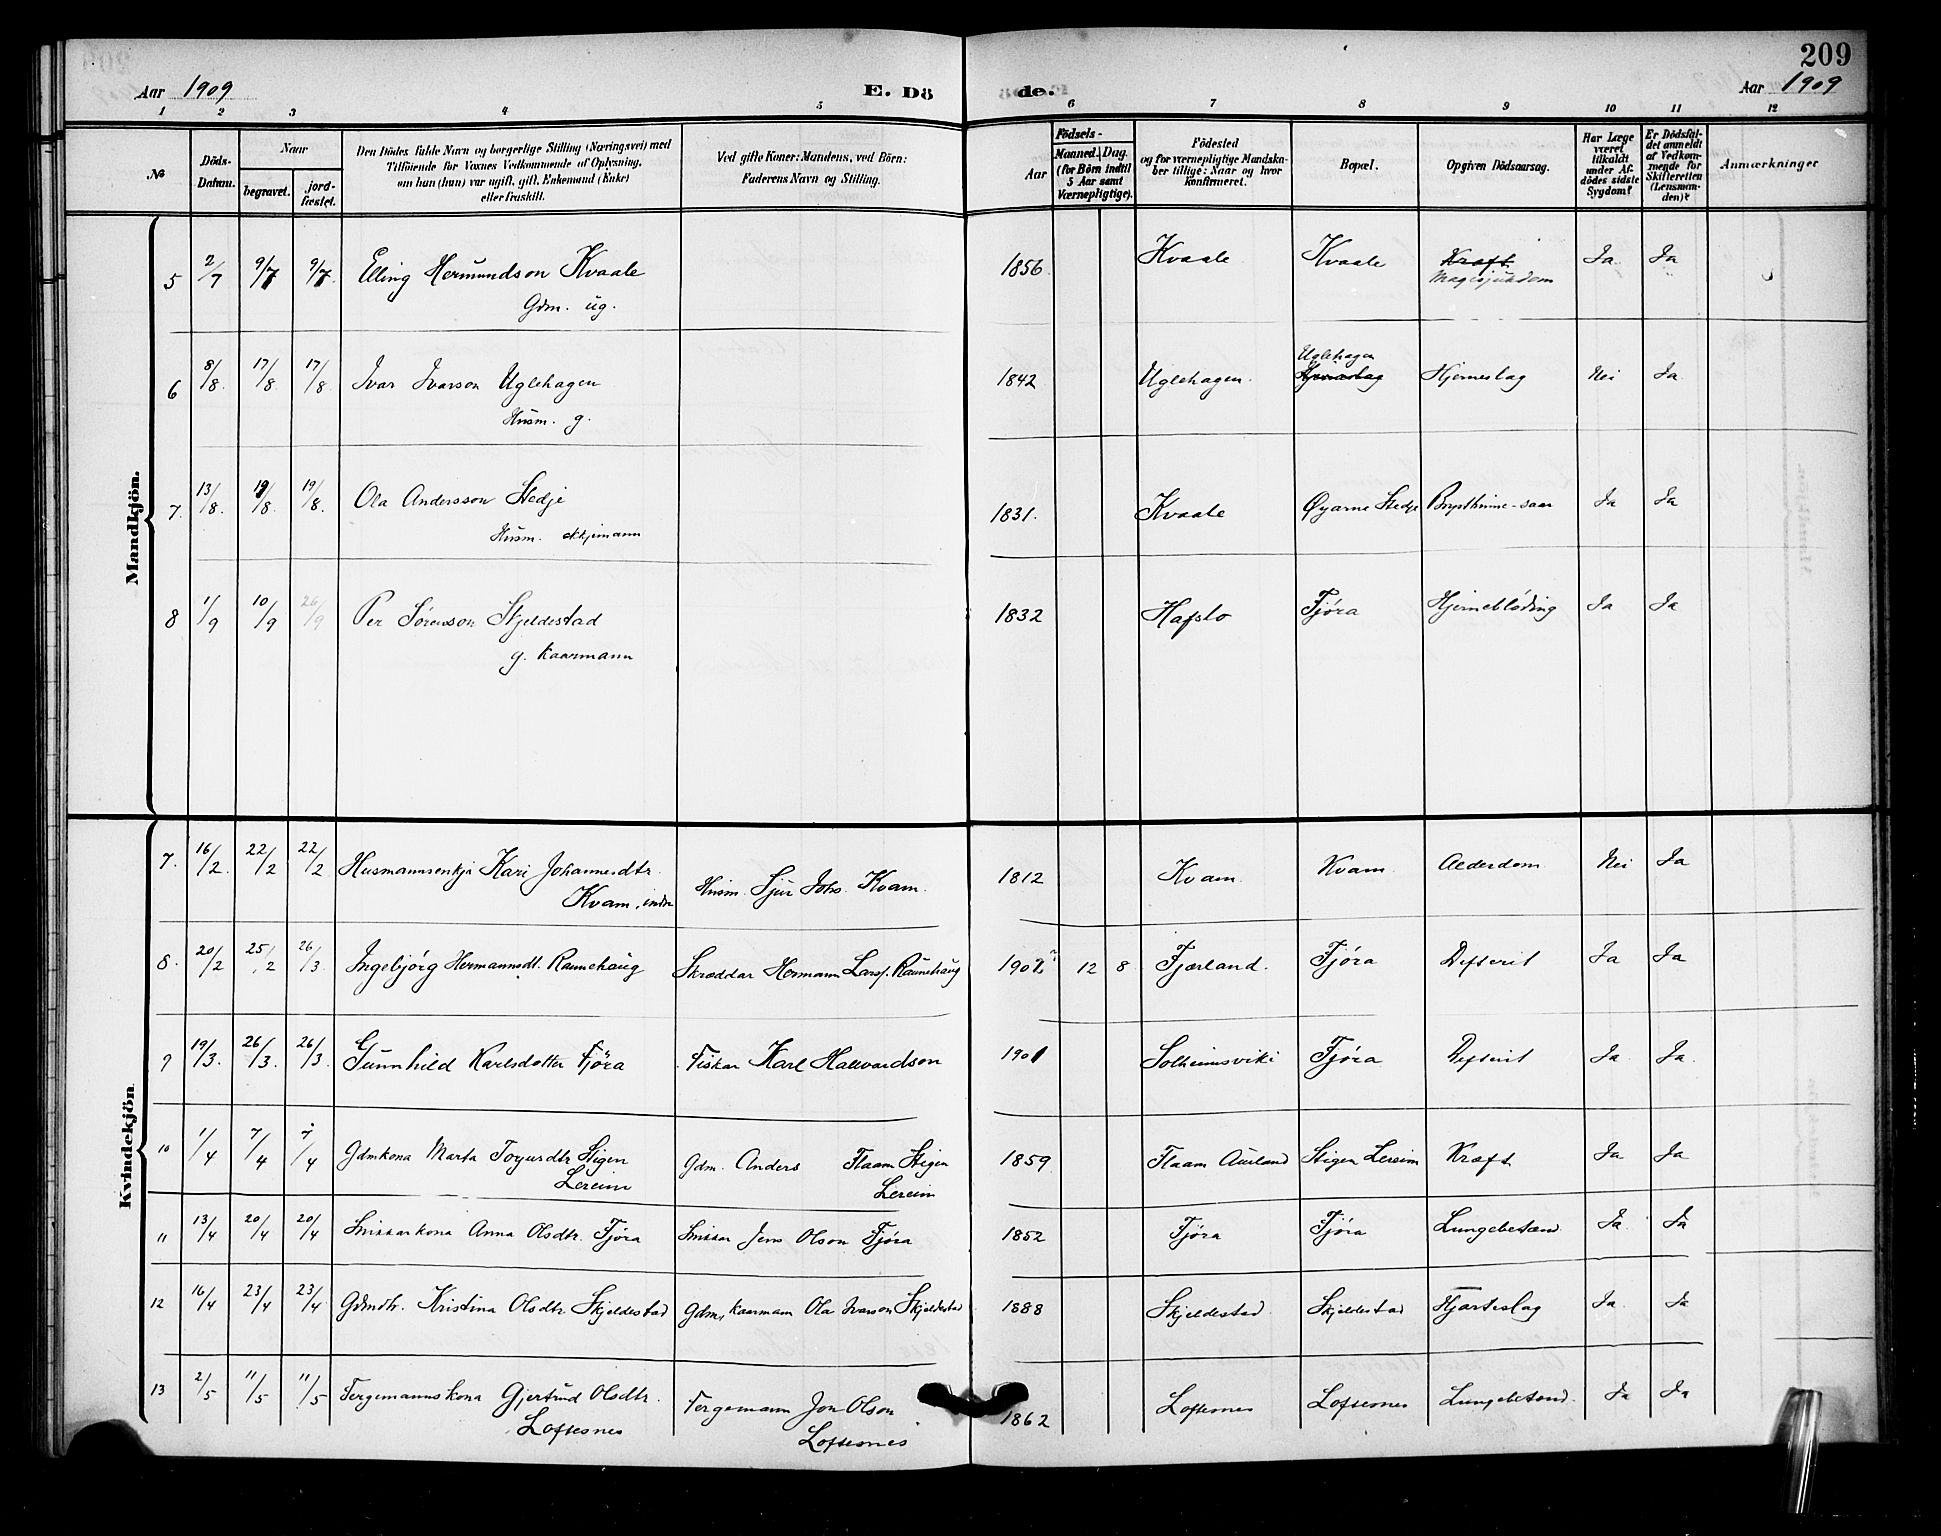 209
Aar 1909
E. Dö
de.
Aar 1909
1 2 3 4 5 6 7 8 9 10 11 12
No
Döds-
Datum.
Naar
begravet.
jord-
fæstet.
Den Dödes fulde Navn og borgerlige Stilling (Næringsvei) med
Tilföiende for Voxnes Vedkommende af Oplysning,
om han (hun) var ugift, gift, Enkemand (Enke)
eller fraskilt.
Ved gifte Koner: Mandens, ved Börn:
Faderens Navn og Stilling.
Födsels-
Aar
Maaned. Dag.
(for Börn indtil
5 Aar samt
Værnepligtige).
Födested
og for værnepligtige Mandska-
ber tillige: Naar og hvor
konfirmeret.
Bopæl.
Opgiven Dödsaarsag.
Har Læge
været
tilkaldt
under Af-
dödes sidste
Sygdom?
Er Dödsfal-
det anmeldt
af Vedkom-
mende for
Skifteretten
(Lensman-
den)?
Anmærkninger
Mandkjön.
5 2/7 9/7 9/7 Elling Hermundson Kvaale 1856 Kvaale Kvaale Kræft Ja Ja
Magesjukdom
Gdm. ug.
6 8/8 17/8 17/8 Ivar Ivarson Uglehagen 1842 Uglehagen Uglehagen Hjerneslag Nei Ja
Husm. g.
7. 13/8 19/8 19/8 Ola Andersson Stedje 1831. Kvaale Øyarne Stedje Ja Ja
Husm. ekkjemann
8 1/9 10/9 26/9 Per Sørensson Skjeldestad 1832 Hafslo Fjøra Hjernebløding Ja Ja
g. kaarmann
Kvindekjön
7. 16/2 22/2 22/2 Husmannsenkja Kari Johannesdtr. Husm. Sjur Johs. Kvam. 1812 Kvam Kvam Alderdom Nei Ja
Kvam, indre
8. 20/2 25/2 26/3 Ingebjørg Hermannsdt. Raunehaug Skræddar Hermann Larss. Raunehaug 1907 12 8 Fjærland. Fjøra Difterit Ja Ja
9 19/3. 26/3. 26/3. Gunnhild Karlsdotter Fjøra Fiskar Karl Hallvardson 1901 Solheimsviki Fjøra Difterit Ja Ja.
10 1/4 7/4 7/4 Gdmkona Marta Stigen Gdm. Anders Flaam Stigen 1859 Flaam Aurland Stigen Lereim Kræft Ja Ja
Lereim Lereim
11 13/4 20/4 20/4 Snikkarkona Anna Olsdtr. Fjøra Snikkar Jens Olson Fjøra 1852 Fjøra Fjøra Lungebetænd Ja Ja
12 16/4 23/4 23/4 Gdmdtr. Kristina Olsdtr Skjeldestad Gdm, kaarmann Ola Ivarson Skjeldestad 1888 Skjeldestad. Skjeldestad Hjarteslag Ja. Ja
13 2/5 11/5 11/5 Fergemannskona Gjertrud Olsdtr. Fergemann Jon Olson 1862 Loftesnes Loftesnes Lungebetænd. Ja Ja
Loftesnes Loftesnes